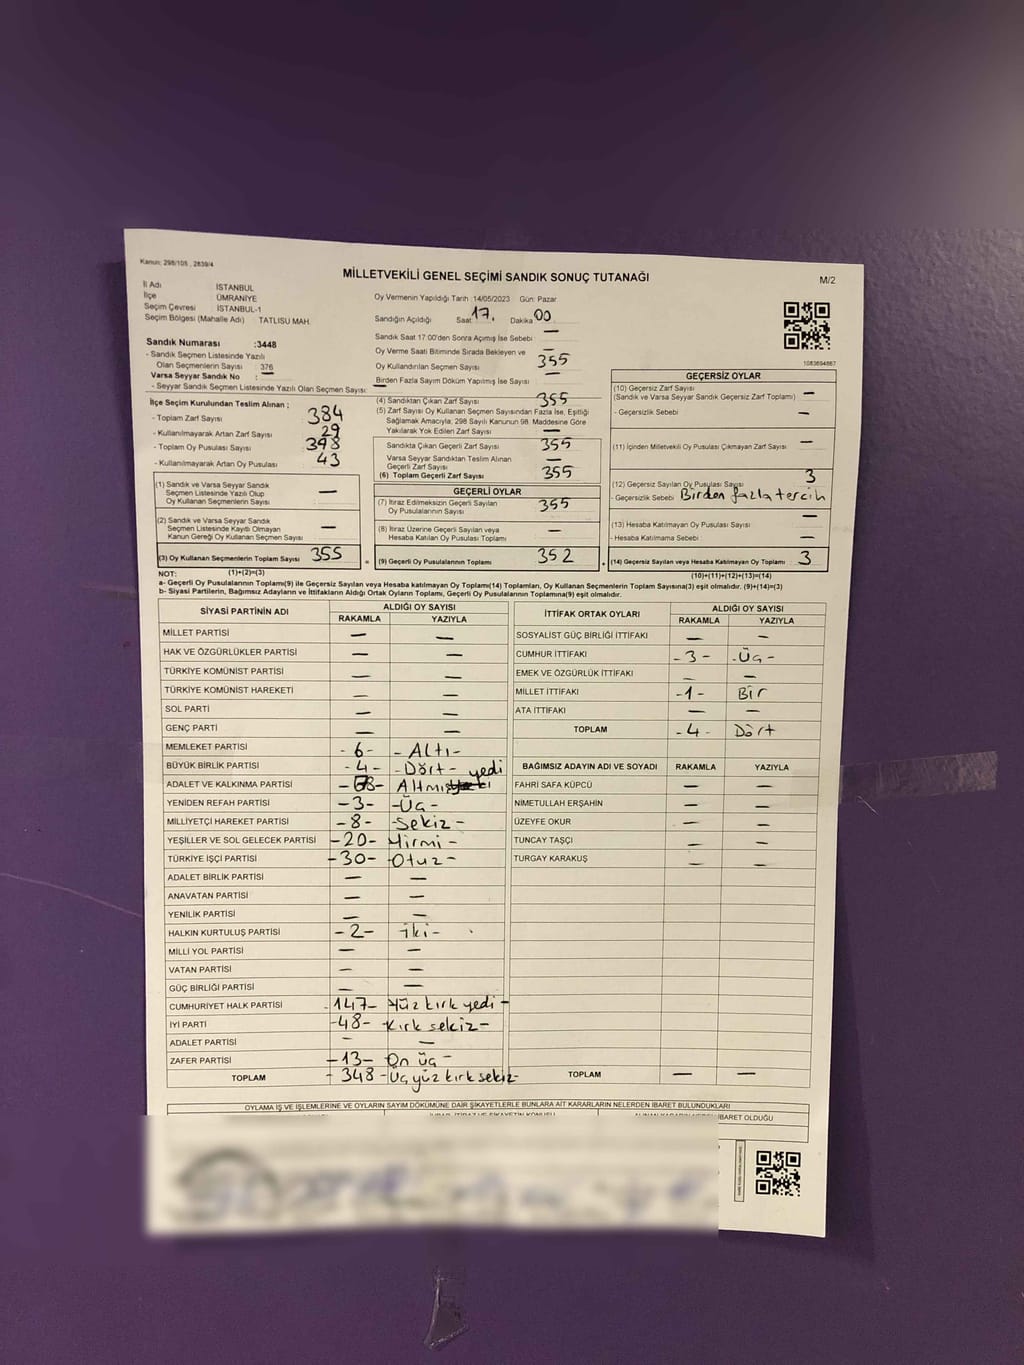 Kanun: 298/105 , 2839/4
MİLLETVEKİLİ GENEL SEÇİMİ SANDIK SONUÇ TUTANAĞI
M/2
İl Adı İSTANBUL
İlçe ÜMRANİYE
Seçim Çevresi İSTANBUL-1
Seçim Bölgesi (Mahalle Adı) TATLISU MAH.
Sandık Numarası :3448
- Sandık Seçmen Listesinde Yazılı
Olan Seçmenlerin Sayısı : 376
Varsa Seyyar Sandık No : —
- Seyyar Sandık Seçmen Listesinde Yazılı Olan Seçmen Sayısı: —
İlçe Seçim Kurulundan Teslim Alınan ;
- Toplam Zarf Sayısı : 384
- Kullanılmayarak Artan Zarf Sayısı : 29
- Toplam Oy Pusulası Sayısı : 398
- Kullanılmayarak Artan Oy Pusulası : 43
(1) Sandık ve Varsa Seyyar Sandık
Seçmen Listesinde Yazılı Olup
Oy Kullanan Seçmenlerin Sayısı : —
(2) Sandık ve Varsa Seyyar Sandık
Seçmen Listesinde Kayıtlı Olmayan
Kanun Gereği Oy Kullanan Seçmen Sayısı : —
(3) Oy Kullanan Seçmenlerin Toplam Sayısı : 355
Oy Vermenin Yapıldığı Tarih :14/05/2023 Gün: Pazar
Sandığın Açıldığı Saat: 17. Dakika: 00
Sandık Saat 17:00'den Sonra Açılmış İse Sebebi : —
Oy Verme Saati Bitiminde Sırada Bekleyen ve —
Oy Kullandırılan Seçmen Sayısı : 355
Birden Fazla Sayım Döküm Yapılmış İse Sayısı : —
(4) Sandıktan Çıkan Zarf Sayısı : 355
(5) Zarf Sayısı Oy Kullanan Seçmen Sayısından Fazla İse, Eşitliği
Sağlamak Amacıyla; 298 Sayılı Kanunun 98. Maddesine Göre
Yakılarak Yok Edilen Zarf Sayısı : —
Sandıkta Çıkan Geçerli Zarf Sayısı : 355
Varsa Seyyar Sandıktan Teslim Alınan
Geçerli Zarf Sayısı : —
(6) Toplam Geçerli Zarf Sayısı : 355
GEÇERLİ OYLAR
(7) İtiraz Edilmeksizin Geçerli Sayılan
Oy Pusulalarının Sayısı : 355
(8) İtiraz Üzerine Geçerli Sayılan veya
Hesaba Katılan Oy Pusulası Toplamı : —
(9) Geçerli Oy Pusulalarının Toplamı : 352
1083694867
GEÇERSİZ OYLAR
(10) Geçersiz Zarf Sayısı
(Sandık ve Varsa Seyyar Sandık Geçersiz Zarf Toplamı) : —
- Geçersizlik Sebebi : —
(11) İçinden Milletvekili Oy Pusulası Çıkmayan Zarf Sayısı : —
(12) Geçersiz Sayılan Oy Pusulası Sayısı : 3
- Geçersizlik Sebebi : Birden fazla tercih
(13) Hesaba Katılmayan Oy Pusulası Sayısı : —
- Hesaba Katılmama Sebebi : —
(14) Geçersiz Sayılan veya Hesaba Katılmayan Oy Toplamı : 3
NOT: (1)+(2)=(3) (10)+(11)+(12)+(13)=(14)
a- Geçerli Oy Pusulalarının Toplamı(9) ile Geçersiz Sayılan veya Hesaba katılmayan Oy Toplamı(14) Toplamları, Oy Kullanan Seçmenlerin Toplam Sayısına(3) eşit olmalıdır. (9)+(14)=(3)
b- Siyasi Partilerin, Bağımsız Adayların ve İttifakların Aldığı Ortak Oyların Toplamı, Geçerli Oy Pusulalarının Toplamına(9) eşit olmalıdır.
SİYASİ PARTİNİN ADI ALDIĞI OY SAYISI
RAKAMLA YAZIYLA
MİLLET PARTİSİ — —
HAK VE ÖZGÜRLÜKLER PARTİSİ — —
TÜRKİYE KOMÜNİST PARTİSİ — —
TÜRKİYE KOMÜNİST HAREKETİ — —
SOL PARTİ — —
GENÇ PARTİ — —
MEMLEKET PARTİSİ -6- -Altı-
BÜYÜK BİRLİK PARTİSİ -4- -Dört-
ADALET VE KALKINMA PARTİSİ Altmış yedi
YENİDEN REFAH PARTİSİ -3- -Üç-
MİLLİYETÇİ HAREKET PARTİSİ -8- -Sekiz-
YEŞİLLER VE SOL GELECEK PARTİSİ -20- Yirmi-
TÜRKİYE İŞÇİ PARTİSİ -30- -Otuz-
ADALET BİRLİK PARTİSİ — —
ANAVATAN PARTİSİ — —
YENİLİK PARTİSİ — —
HALKIN KURTULUŞ PARTİSİ -2- iki-
MİLLİ YOL PARTİSİ — —
VATAN PARTİSİ — —
GÜÇ BİRLİĞİ PARTİSİ — —
CUMHURİYET HALK PARTİSİ -147- Yüz kırk yedi-
İYİ PARTİ -48- -Kırk sekiz-
ADALET PARTİSİ — —
ZAFER PARTİSİ -13- On üç-
TOPLAM -348- Üç yüz kırk sekiz-
İTTİFAK ORTAK OYLARI ALDIĞI OY SAYISI
RAKAMLA YAZIYLA
SOSYALİST GÜÇ BİRLİĞİ İTTİFAKI — —
CUMHUR İTTİFAKI -3- -Üç-
EMEK VE ÖZGÜRLÜK İTTİFAKI — —
MİLLET İTTİFAKI -1- Bir
ATA İTTİFAKI — —
TOPLAM -4- Dört
BAĞIMSIZ ADAYIN ADI VE SOYADI RAKAMLA YAZIYLA
FAHRİ SAFA KÜPCÜ — —
NİMETULLAH ERŞAHİN — —
ÜZEYFE OKUR — —
TUNCAY TAŞÇI — —
TURGAY KARAKUŞ — —
TOPLAM — —
OYLAMA İŞ VE İŞLEMLERİNE VE OYLARIN SAYIM DÖKÜMÜNE DAİR ŞİKAYETLERLE BUNLARA AİT KARARLARIN NELERDEN İBARET BULUNDUKLARI